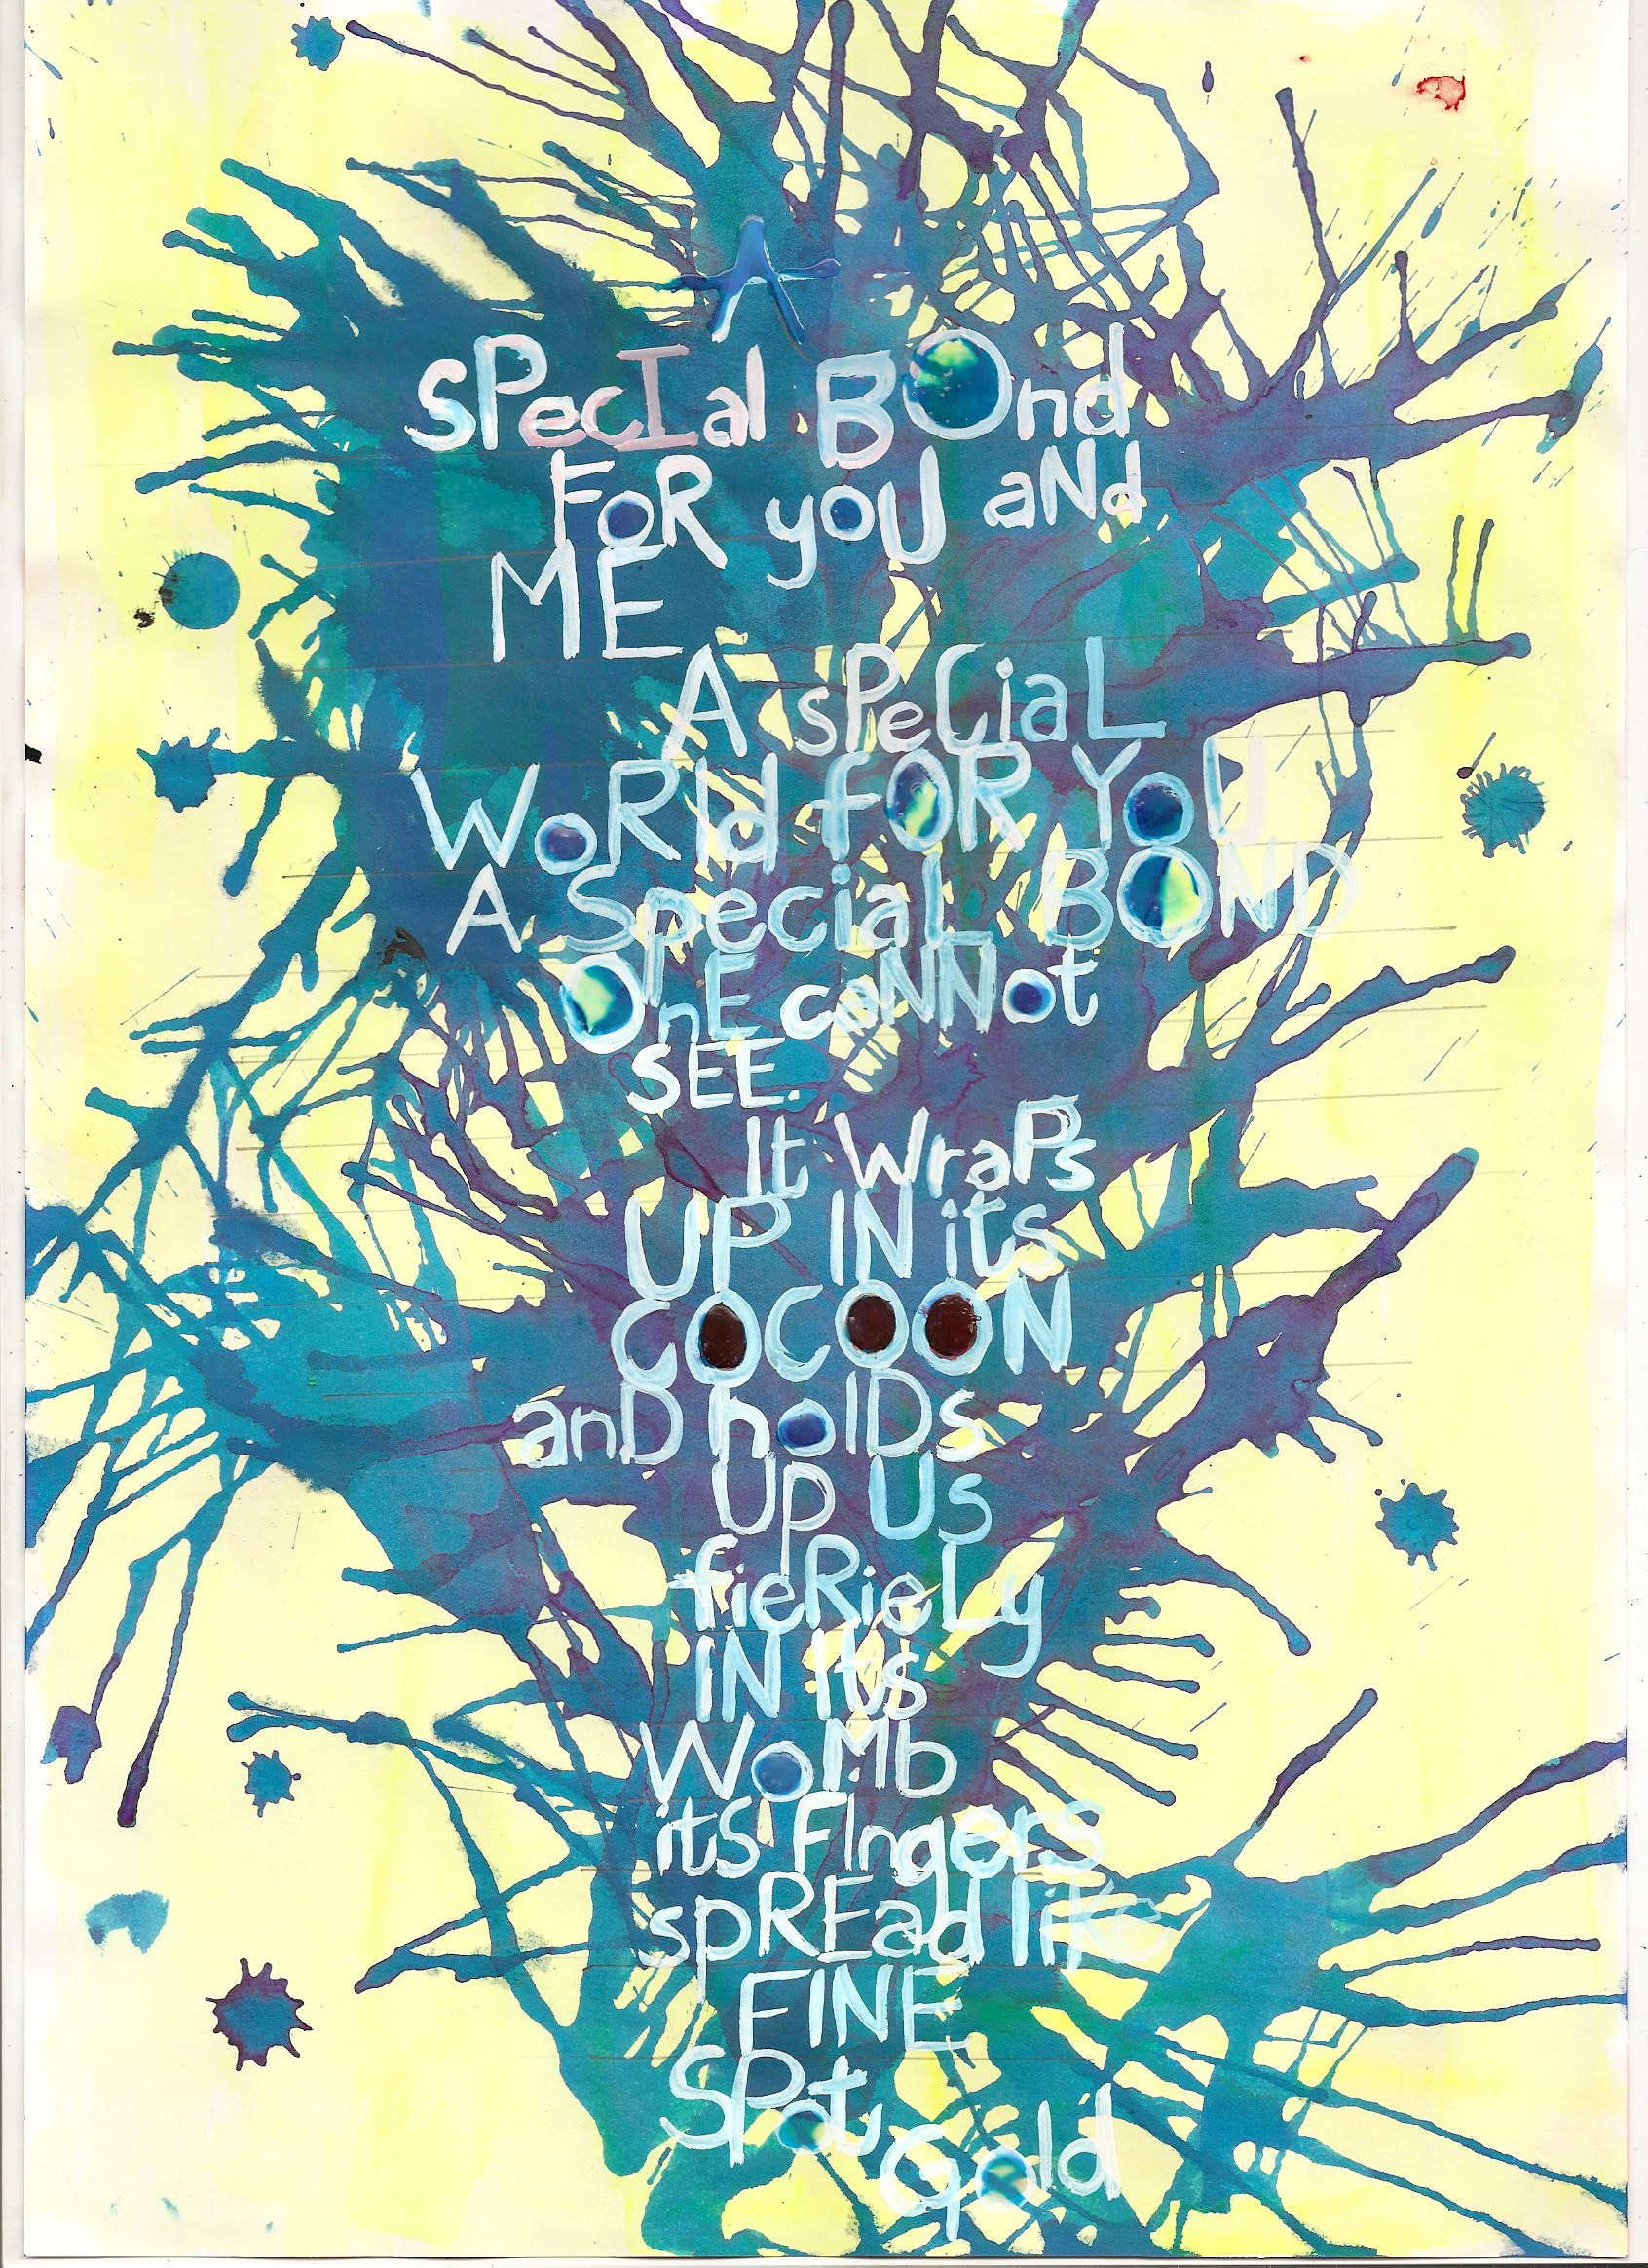 A
sPecIal BOnd
FoR yoU aNd
ME
A sPeCiaL
WoRld fOR YoU
A Special BOND
OnE caNNot
SEE.
It WraPs
UP IN its
COCOON
anD holDs
Up Us
fieRieLy
IN Its
WoMb
itS FIngers
spREad like
FINE
SPot
Gold